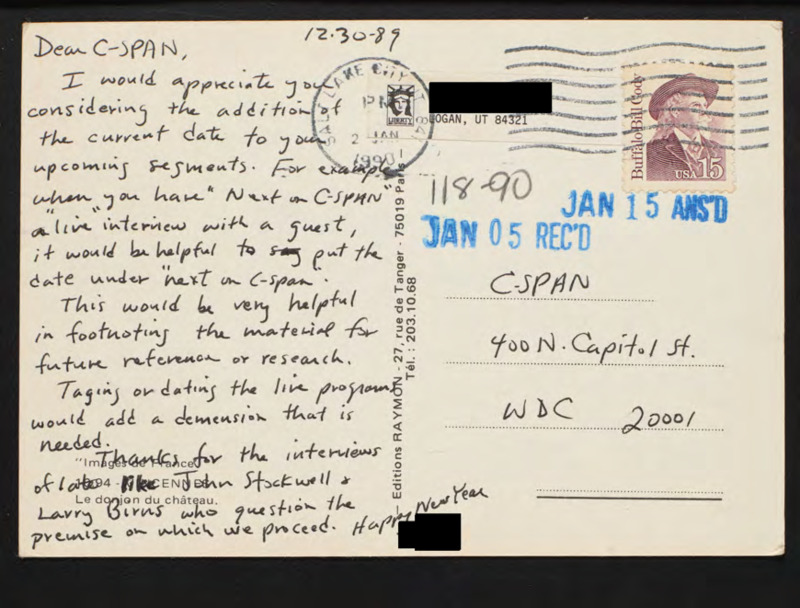 12-30-89
Dear C-SPAN,
I would appreciate you
considering the addition of
the current date to your
upcoming segments. For example
when you have "Next on C-SPAN"
a "live" interview with a guest,
it would be helpful to say put the
date under "next on C-span".
This would be very helpful
in footnoting the material for
future reference or research.
Taging or dating the live programs
would add a demension that is
needed.
Thanks for the interviews
of late like John Stockwell &
Larry Birns who question the
premise on which we proceed. Happy New Year
"Images de France"
VINCENNES
Le donjon du château.
Editions RAYMON - 27, rue de Tanger - 75019 Paris
Tél. : 203.10.68
SALT LAKE CITY UT 841
PM
2 JAN
1990
LIBERTY
LOGAN, UT 84321
Buffalo Bill Cody
USA 15
118-90
JAN 15 ANS'D
JAN 05 REC'D
C-SPAN
400 N. Capitol St.
WDC 20001